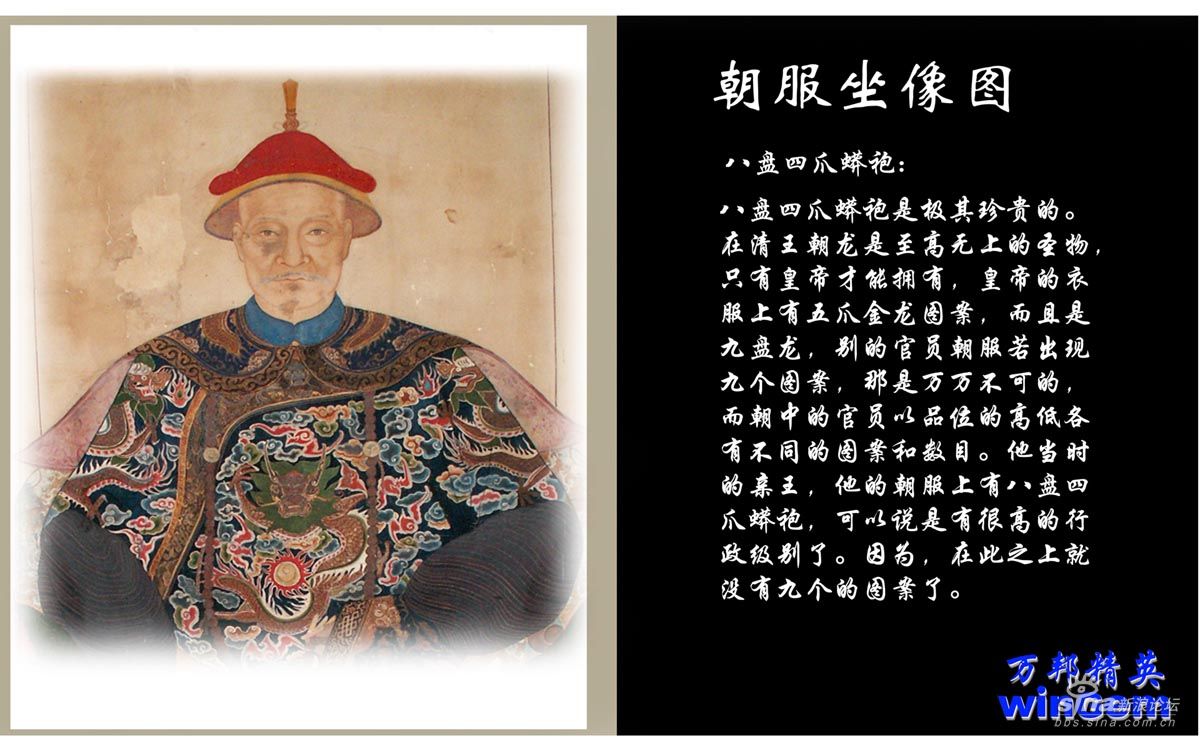 朝服坐像图
八盘四爪蟒袍：
八盘四爪蟒袍是极其珍贵的。
在清王朝龙是至高无上的圣物，
只有皇帝才能拥有，皇帝的衣
服上有五爪金龙图案，而且是
九盘龙，别的官员朝服若出现
九个图案，那是万万不可的，
而朝中的官员以品位的高低各
有不同的图案和数目。他当时
的亲王，他的朝服上有八盘四
爪蟒袍，可以说是有很高的行
政级别了。因为，在此之上就
没有九个的图案了。
万邦精英
wincom
sina新浪论坛
bbs.sina.com.cn